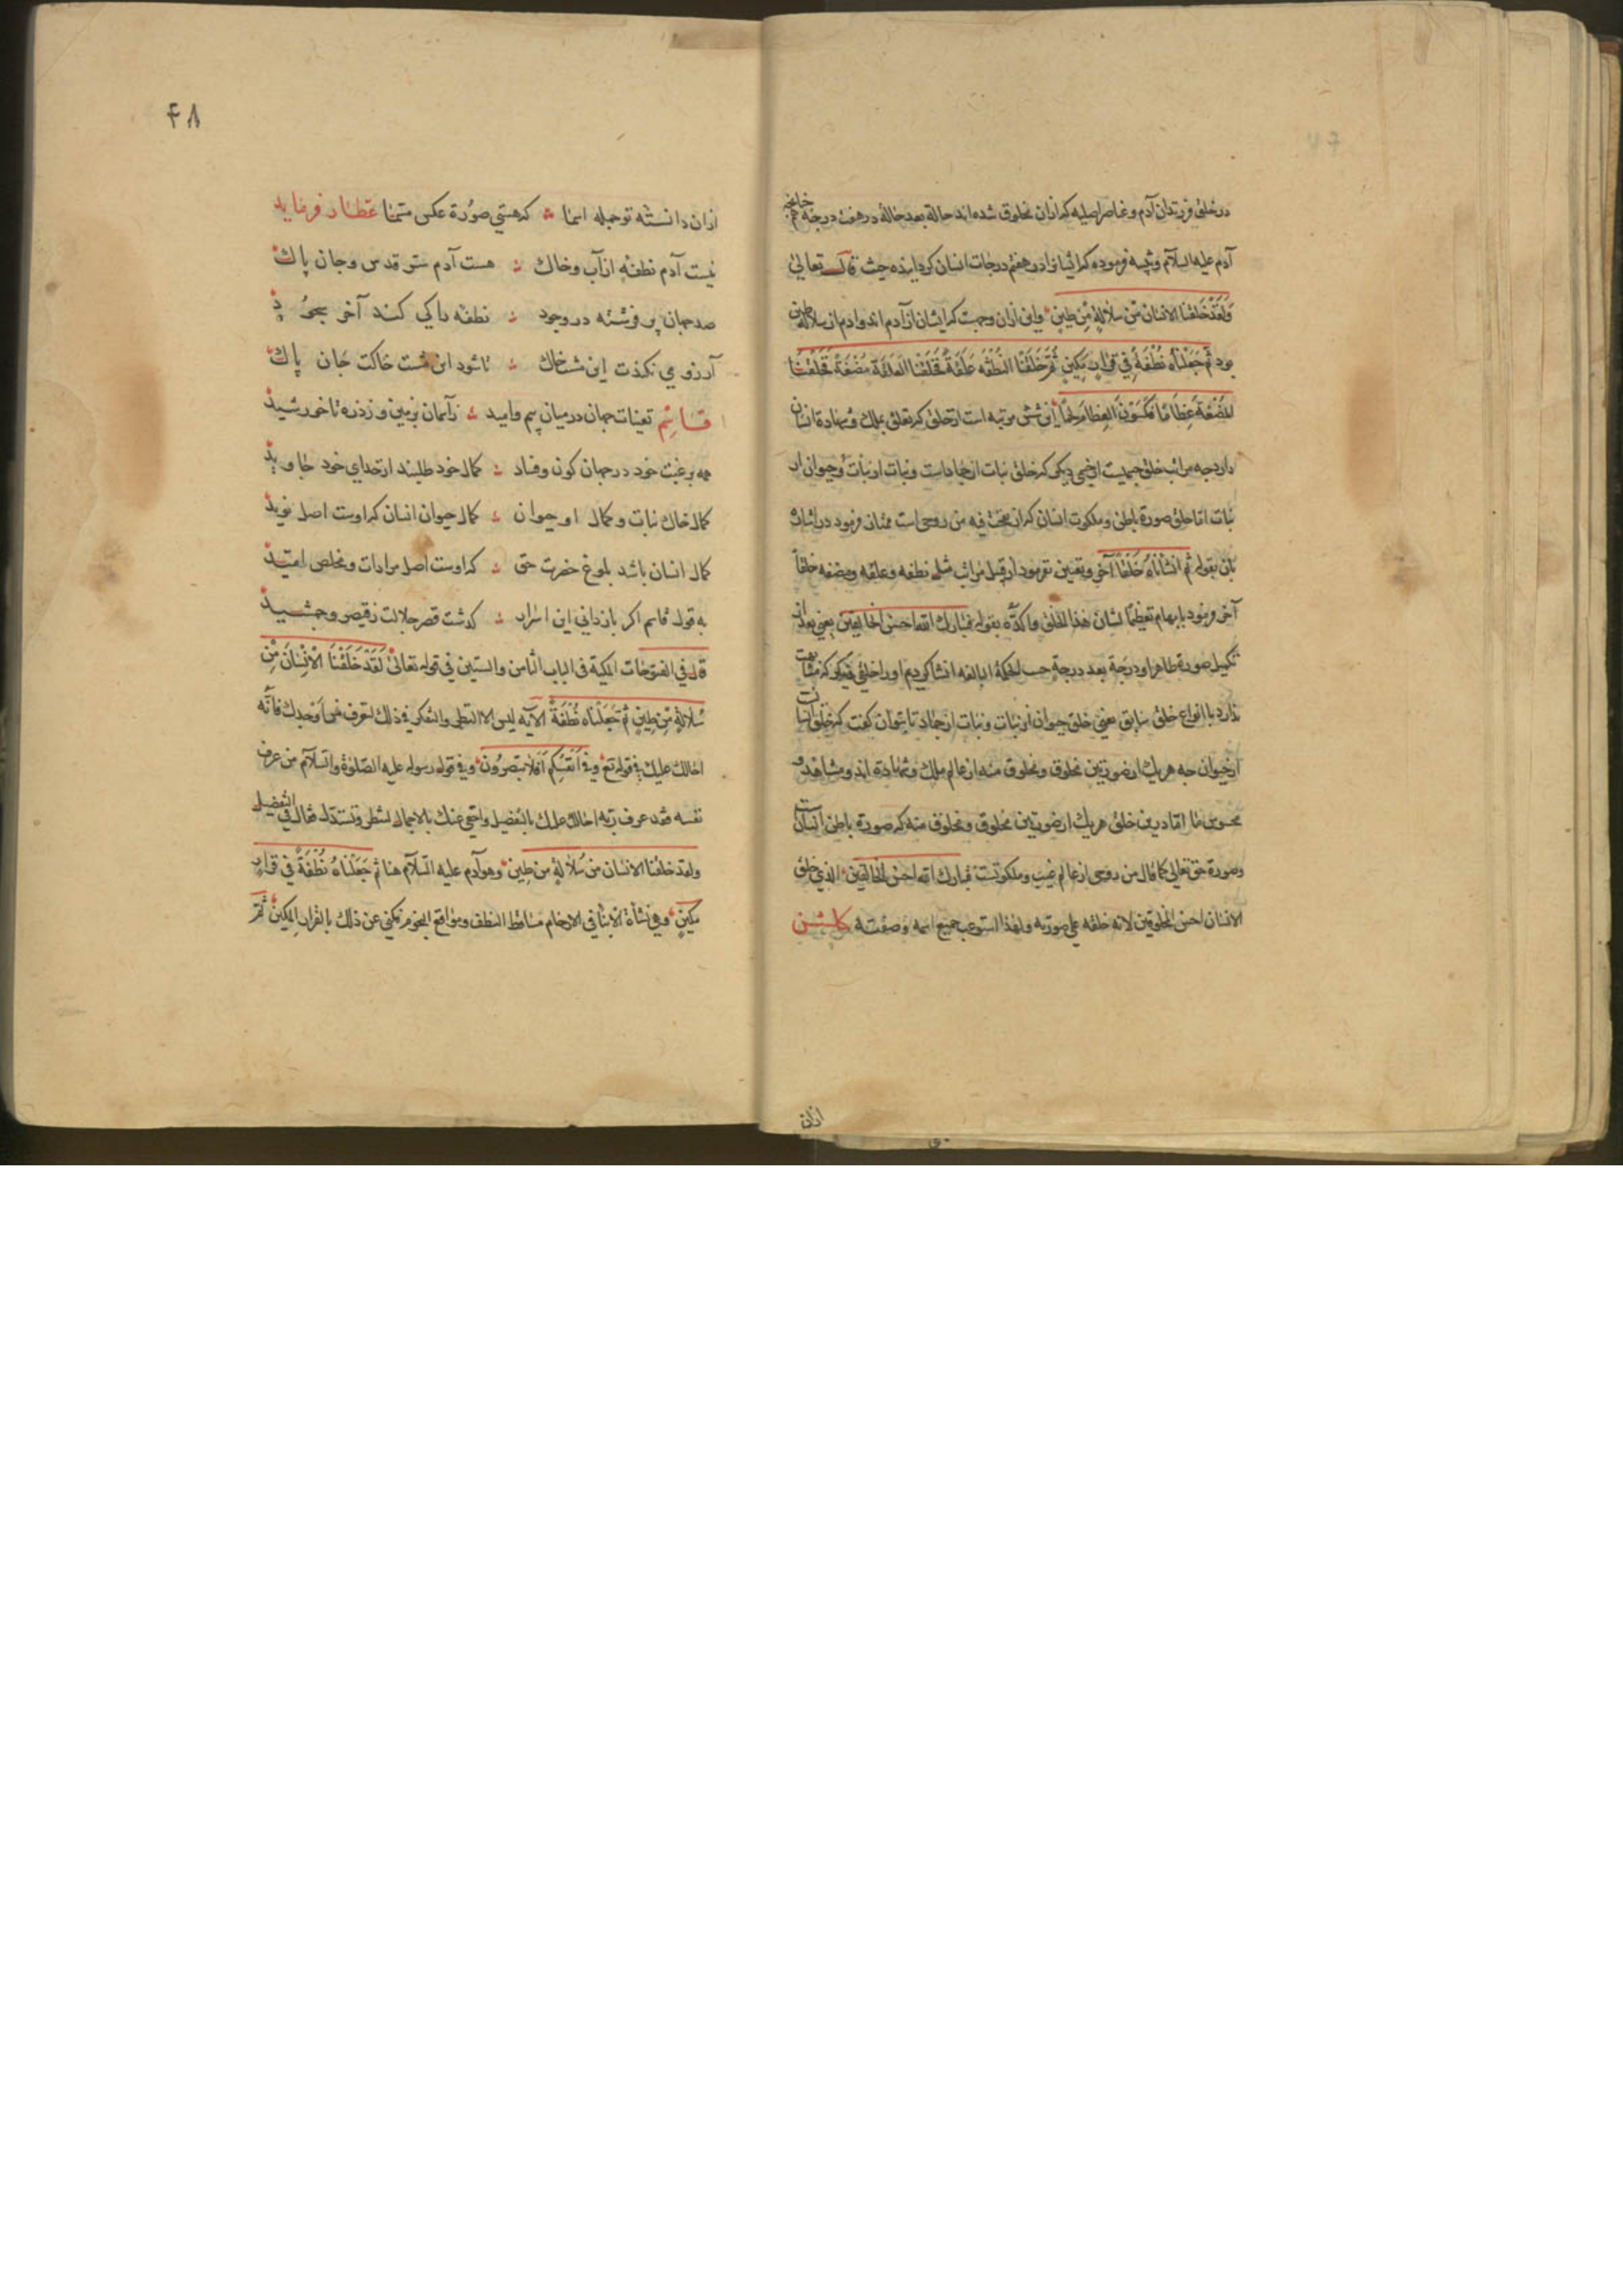 در خلق فرزندان آدم و عناصر اصلیه که ازان مخلوق شده‌اند حالة بعد حالة در هفت درجه خانچه
آدم علیه السلام و فرموده که انسانرا در هفتم درجات انسان گردانیده حیث قال تعالی
وَلَقَدْ خَلَقْنا الانسانَ مّنْ سلالةٍ مّن طینٍ واین ازان وجهست که ایشان از آدم اند و ادم از سلالة طین
بود ثُمَّ جَعَلْناهُ نُطْفَةً فِی قرارٍ مَکِینٍ ثُمَّ خَلَقْنا النُّطْفَه عَلَقَةً فَخَلَقْنا العَلَقَةَ مُضْغَةً فَخَلَقْنا
المُضْغَةَ عِظامًا فَکَسَوْنا العِظامَ لَحْمًا این شش مرتبه است از خلق که تعلق بملک و شهادة انسان
دارد چه مراتب خلق جسمیت از جسمی دیگر که خلق نبات از جمادات و نبات از نبات و حیوان از
نبات اما خلق صورة باطن و ملکوت انسان که از نفخت فیه من روحی است ممتاز فرمود در اشارت
بآن بقوله ثم انشأناهُ خَلْقًا آخر و تعیین نفرمود از قبیل مراتب مثل نطفه و علقه و مضغه خلقاً
آخر فرمود بابهام تعظیمًا لشان هذا الخلق واکدّه بقوله فتبارک الله احسن الخالقین یعنی بعد از
تکمیل صورة ظاهر او درجة بعد درجة حسب الحکمة البالغه انشا کردیم او را خلقی دیگر که مشابهت
ندارد با انواع خلق سابق یعنی خلق حیوان از نبات و نبات از جماد تا بتوان گفت که خلق انسانست
از حیوان چه هر یک از صورتین مخلوق و مخلوق منه از عالم ملک و شهادة اند و مشاهد و
محسوس ما اما درین خلق هر یک از صورتین مخلوق و مخلوق منه که صورة باطن انسانست
و صورة حق تعالی کما قال من روحی از عالم غیب و ملکوتست فتبارک الله احسن الخالقین الذی خلق
الانسان احسن المخلوقین لانه خلقه علی صورته و لهذا استوعب جمیع اسمه و صفته گلشن
ازان
۴۸
ازان دانستهٔ تو جمله اسما که هستی صورة عکس مسمّا عطار فرماید
نیست آدم نطفهٔ از آب و خاک هست آدم ستر قدس و جان پاک
صد جهان پر فرشته در وجود نطفه را کی کند آخر سجود
آرزو می نکندت این مشت خاک تا شود این مشت خاکت جان پاک
قاسِم تعینات جهان در میان بیم و امید زآسمان بزمین و ز ذره تا خورشید
همه برغبت خود در جهان کون و فساد کمال خود طلبند از خدای خود جاوید
کمال خاک نبات و کمال او حیوان کمال حیوان انسان که اوست اصل نوید
کمال انسان باشد بلوغ حضرت حق که اوست اصل مرادات و مخلص امّید
به قول قاسم اگر بازدانی این اسرار گذشت قصر جلالت ز قیصر و جمشید
قال فی الفتوحات المکیة فی الباب الثامن والستین فی قوله تعالی لَقَدْ خَلَقْنا الْاِنْسٰانَ مِّنْ
سُلالةٍ مّنْ طِینٍ ثم جَعَلْناه نُطْفَةً الآیة لیس الا التطر والتفکر فی ذلک لتعرف من اَوْجدک فانّه
احالک علیک فی قوله تع وفی اَنْفُسِکُم اَفَلا تبْصِرُون وفی قوله رسوله علیه الصّلوٰة والسّلام من عرف
نفسه فقد عرف ربّه احالک علیک بالتفصیل واخفی عنک بالاجمال لتنظر وتستدلّ فقال فی التفصیل
ولقد خلقنا الانسان من سُلالةٍ من طین وهو آدم علیه السّلام هنا ثم جَعَلْناهُ نُطْفَةً فی قرارٍ
مَکینٍ وهی نشاة الابنا فی الارحام مساقط النطف ومواقع النجوم فکنی عن ذلک بالقرار المکین ثمّ